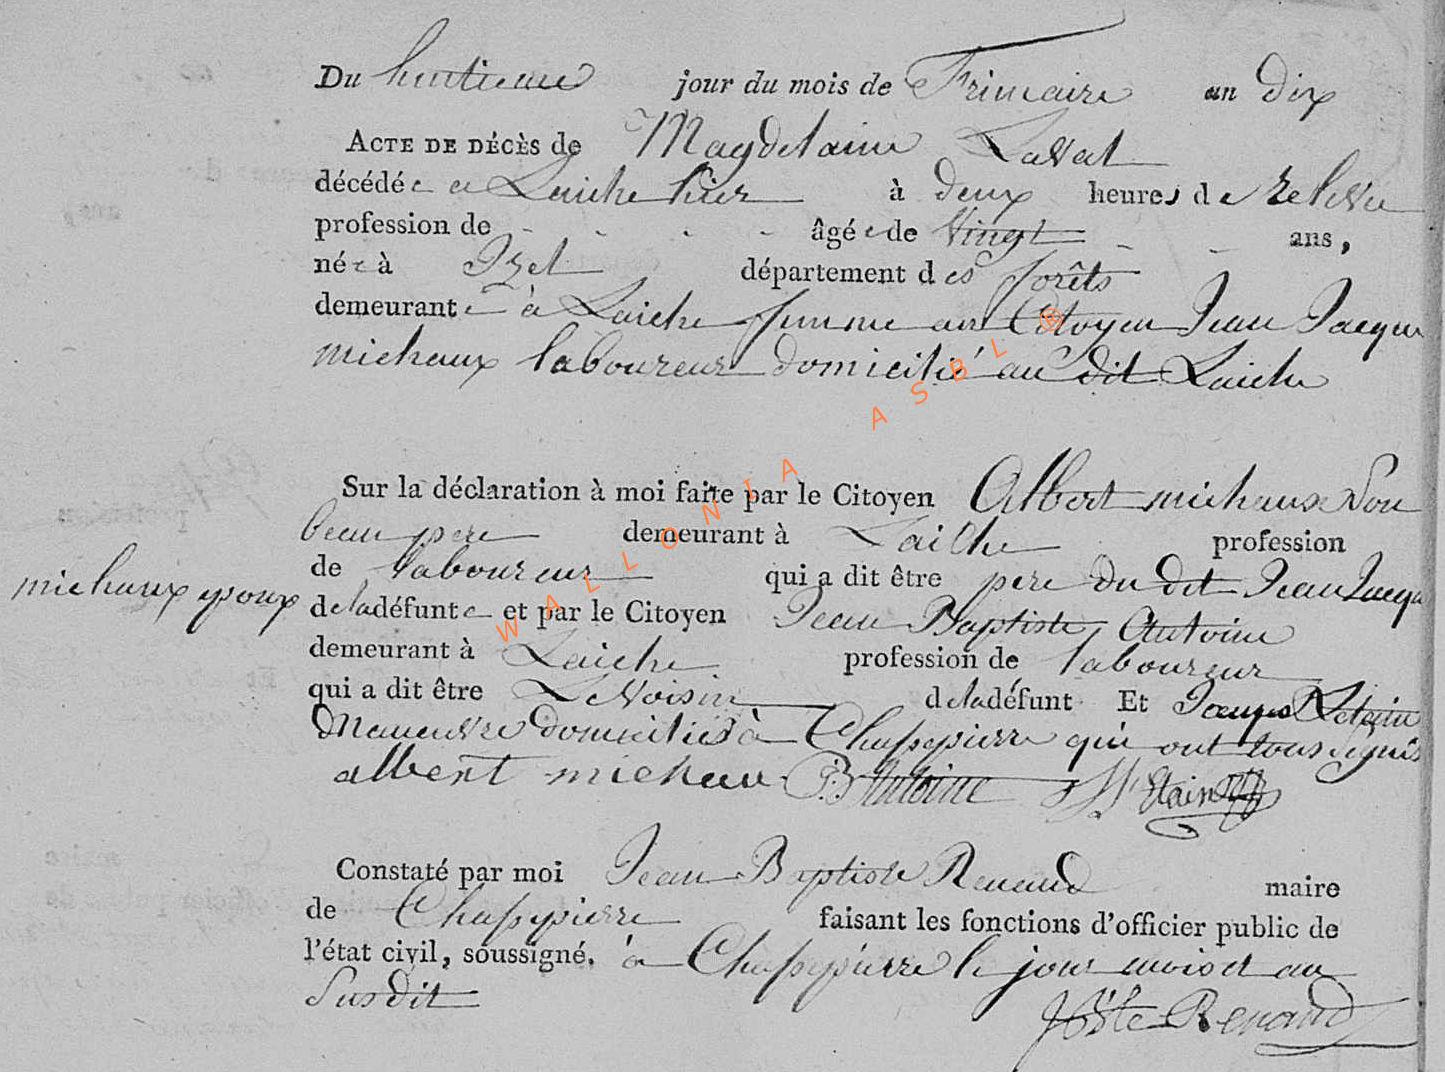 Du huitieme jour du mois de Frimaire an dix
ACTE DE DÉCÈS de Magdelaine Laval
décédée a Laiche hier à deux heures de relevee
profession de - - - - âgée de Vingt - - ans,
née à Izel département des forêts
demeurante à Laiche femme au Citoyen Jean Jacque
michaux laboureur domicilié au dit Laiche
Sur la déclaration à moi faite par le Citoyen Albert michaux Son
beau pere demeurant à Laiche profession
de laboureur qui a dit être pere du dit Jean Jacque
michaux epoux de la défunte et par le Citoyen Jean Baptiste Antoine
demeurant à Laiche profession de laboureur
qui a dit être Le Voisin de la défunt Et Jacques
Maneuvre domiciliés à Chassepierre qui ont tous signés
albert michaux JB Antoine
Constaté par moi Jean Baptiste Renaud maire
de Chassepierre faisant les fonctions d'officier public de
l'état civil, soussigné. à Chassepierre le jour mois et an
Susdit
JBte Renaud
WALLONIA ASBL ®